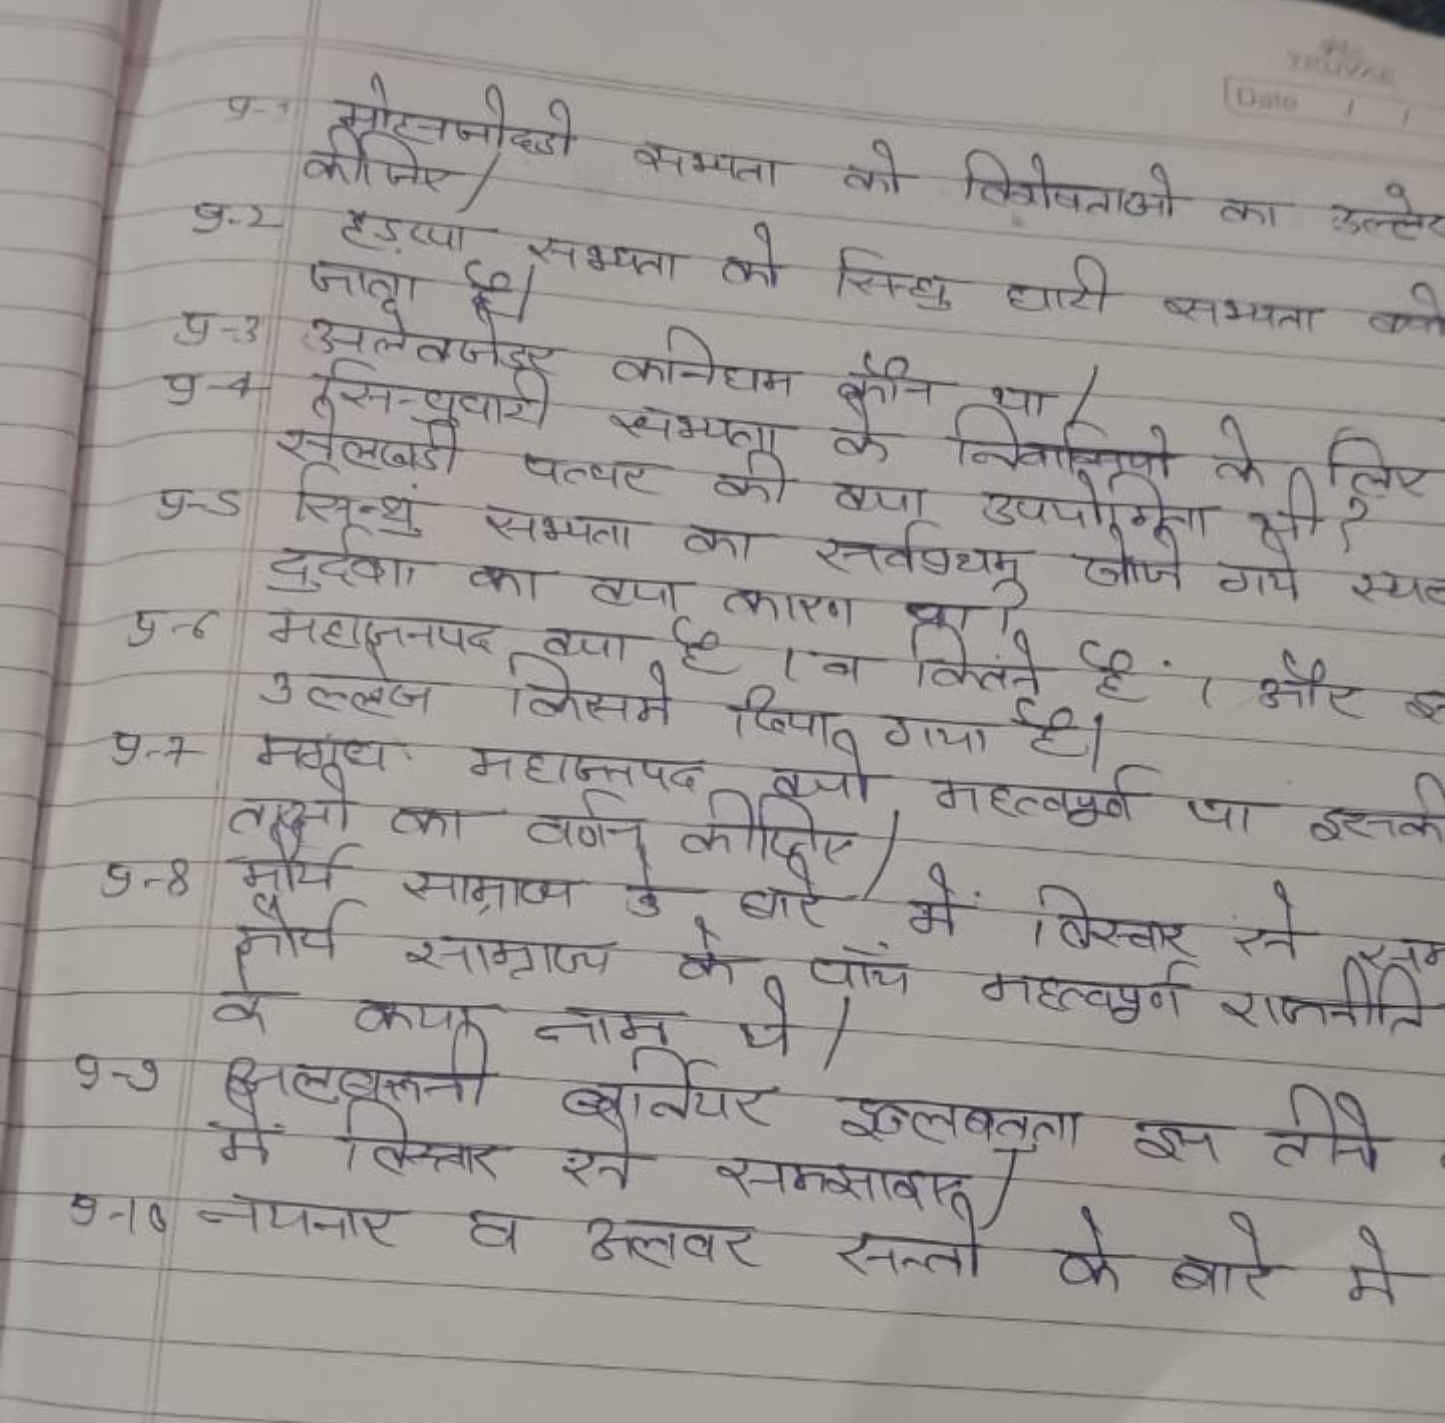 Date / /
प्र-1 मोहनजोदडो सभ्यता की विशेषताओ का उल्लेख
कीजिए/
प्र-2 हड़प्पा सभ्यता को सिन्धु घाटी सभ्यता क्यो
जाता है।
प्र-3 अलेक्जेंडर कनिघम कौन था/
प्र-4 सिन्धुघाटी सभ्यता के निवासियो के लिए
सेलखडी पत्थर की क्या उपयोगिता थी?
प्र-5 सिन्धु सभ्यता का सर्वप्रथम खोजे गये स्थल
दुर्दशा का क्या कारण था।
प्र-6 महाजनपद क्या है । व कितने है । और
उल्लेख किसमे किया गया है।
प्र-7 मगध महाजनपद क्यो महत्वपूर्ण था इसकी
का वर्णन कीजिए/
प्र-8 मौर्य साम्राज्य के बारे में विस्तार से
मौर्य साम्राज्य के पाँच महत्वपूर्ण राजनीति
के क्या नाम थे/
प्र-9 अलबरूनी बर्नियर इब्नबतुता इन तीनो
में विस्तार से समझाइए/
प्र-10 नयनार व अलवर सन्तो के बारे मे